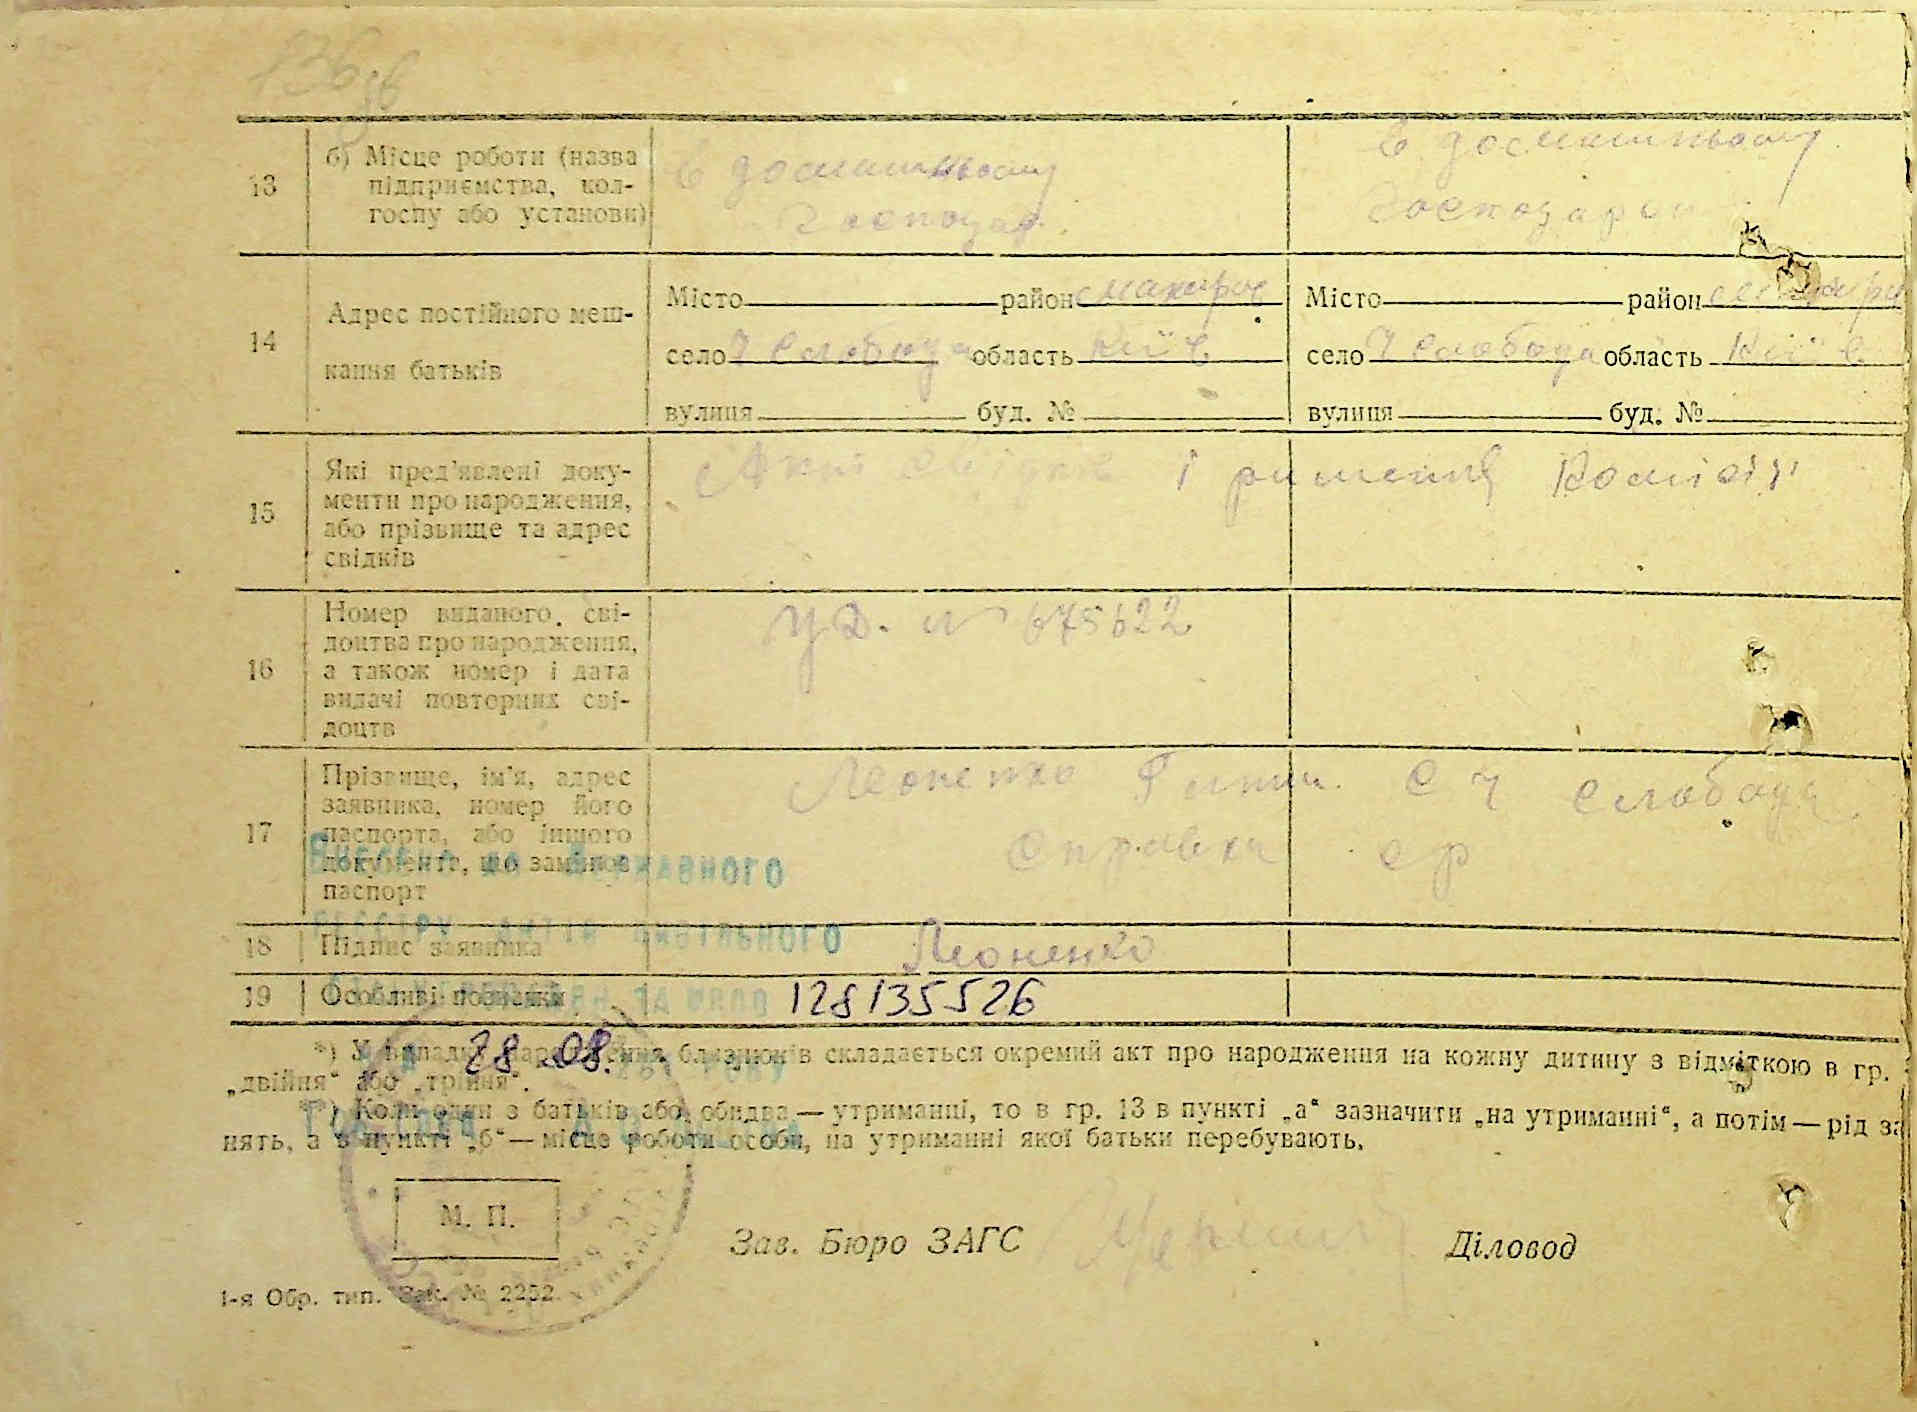 136
13 б) Місце роботи (назва підприємства, кол-госпу або установи)
в домашньому господар.
в домашньому господарст
14 Адрес постійного меш-кання батьків
Місто район макаров Місто район
село Ч Слобода область Київ село Ч Слобода область Київ
вулиця буд. № вулиця буд. №
15 Які пред'явлені доку-менти про народження, або прізвище та адрес свідків
Акт і рішення Комісії
16 Номер виданого сві-доцтва про народження, а також номер і дата видачі повторних сві-доцтв
УД. № 675622
17 Прізвище, ім'я, адрес заявника, номер його паспорта, або іншого документа, що замінює паспорт
Леоненко с Ч Слобода
Справка ср
Внесено до Державного
реєстру актів цивільного
18 Підпис заявника Леоненко
19 Особливі познаки 128135526
28 08.
*) У випадку народження близнюків складається окремий акт про народження на кожну дитину з відміткою в гр.
„двійня“ або „трійня“.
**) Коли один з батьків або обидва — утриманці, то в гр. 13 в пункті „а“ зазначити „на утриманні“, а потім — рід за
нять, а в пункті „б“ — місце роботи особи, на утриманні якої батьки перебувають.
М. П.
Зав. Бюро ЗАГС Діловод
1-я Обр. тип. Зак. № 2252